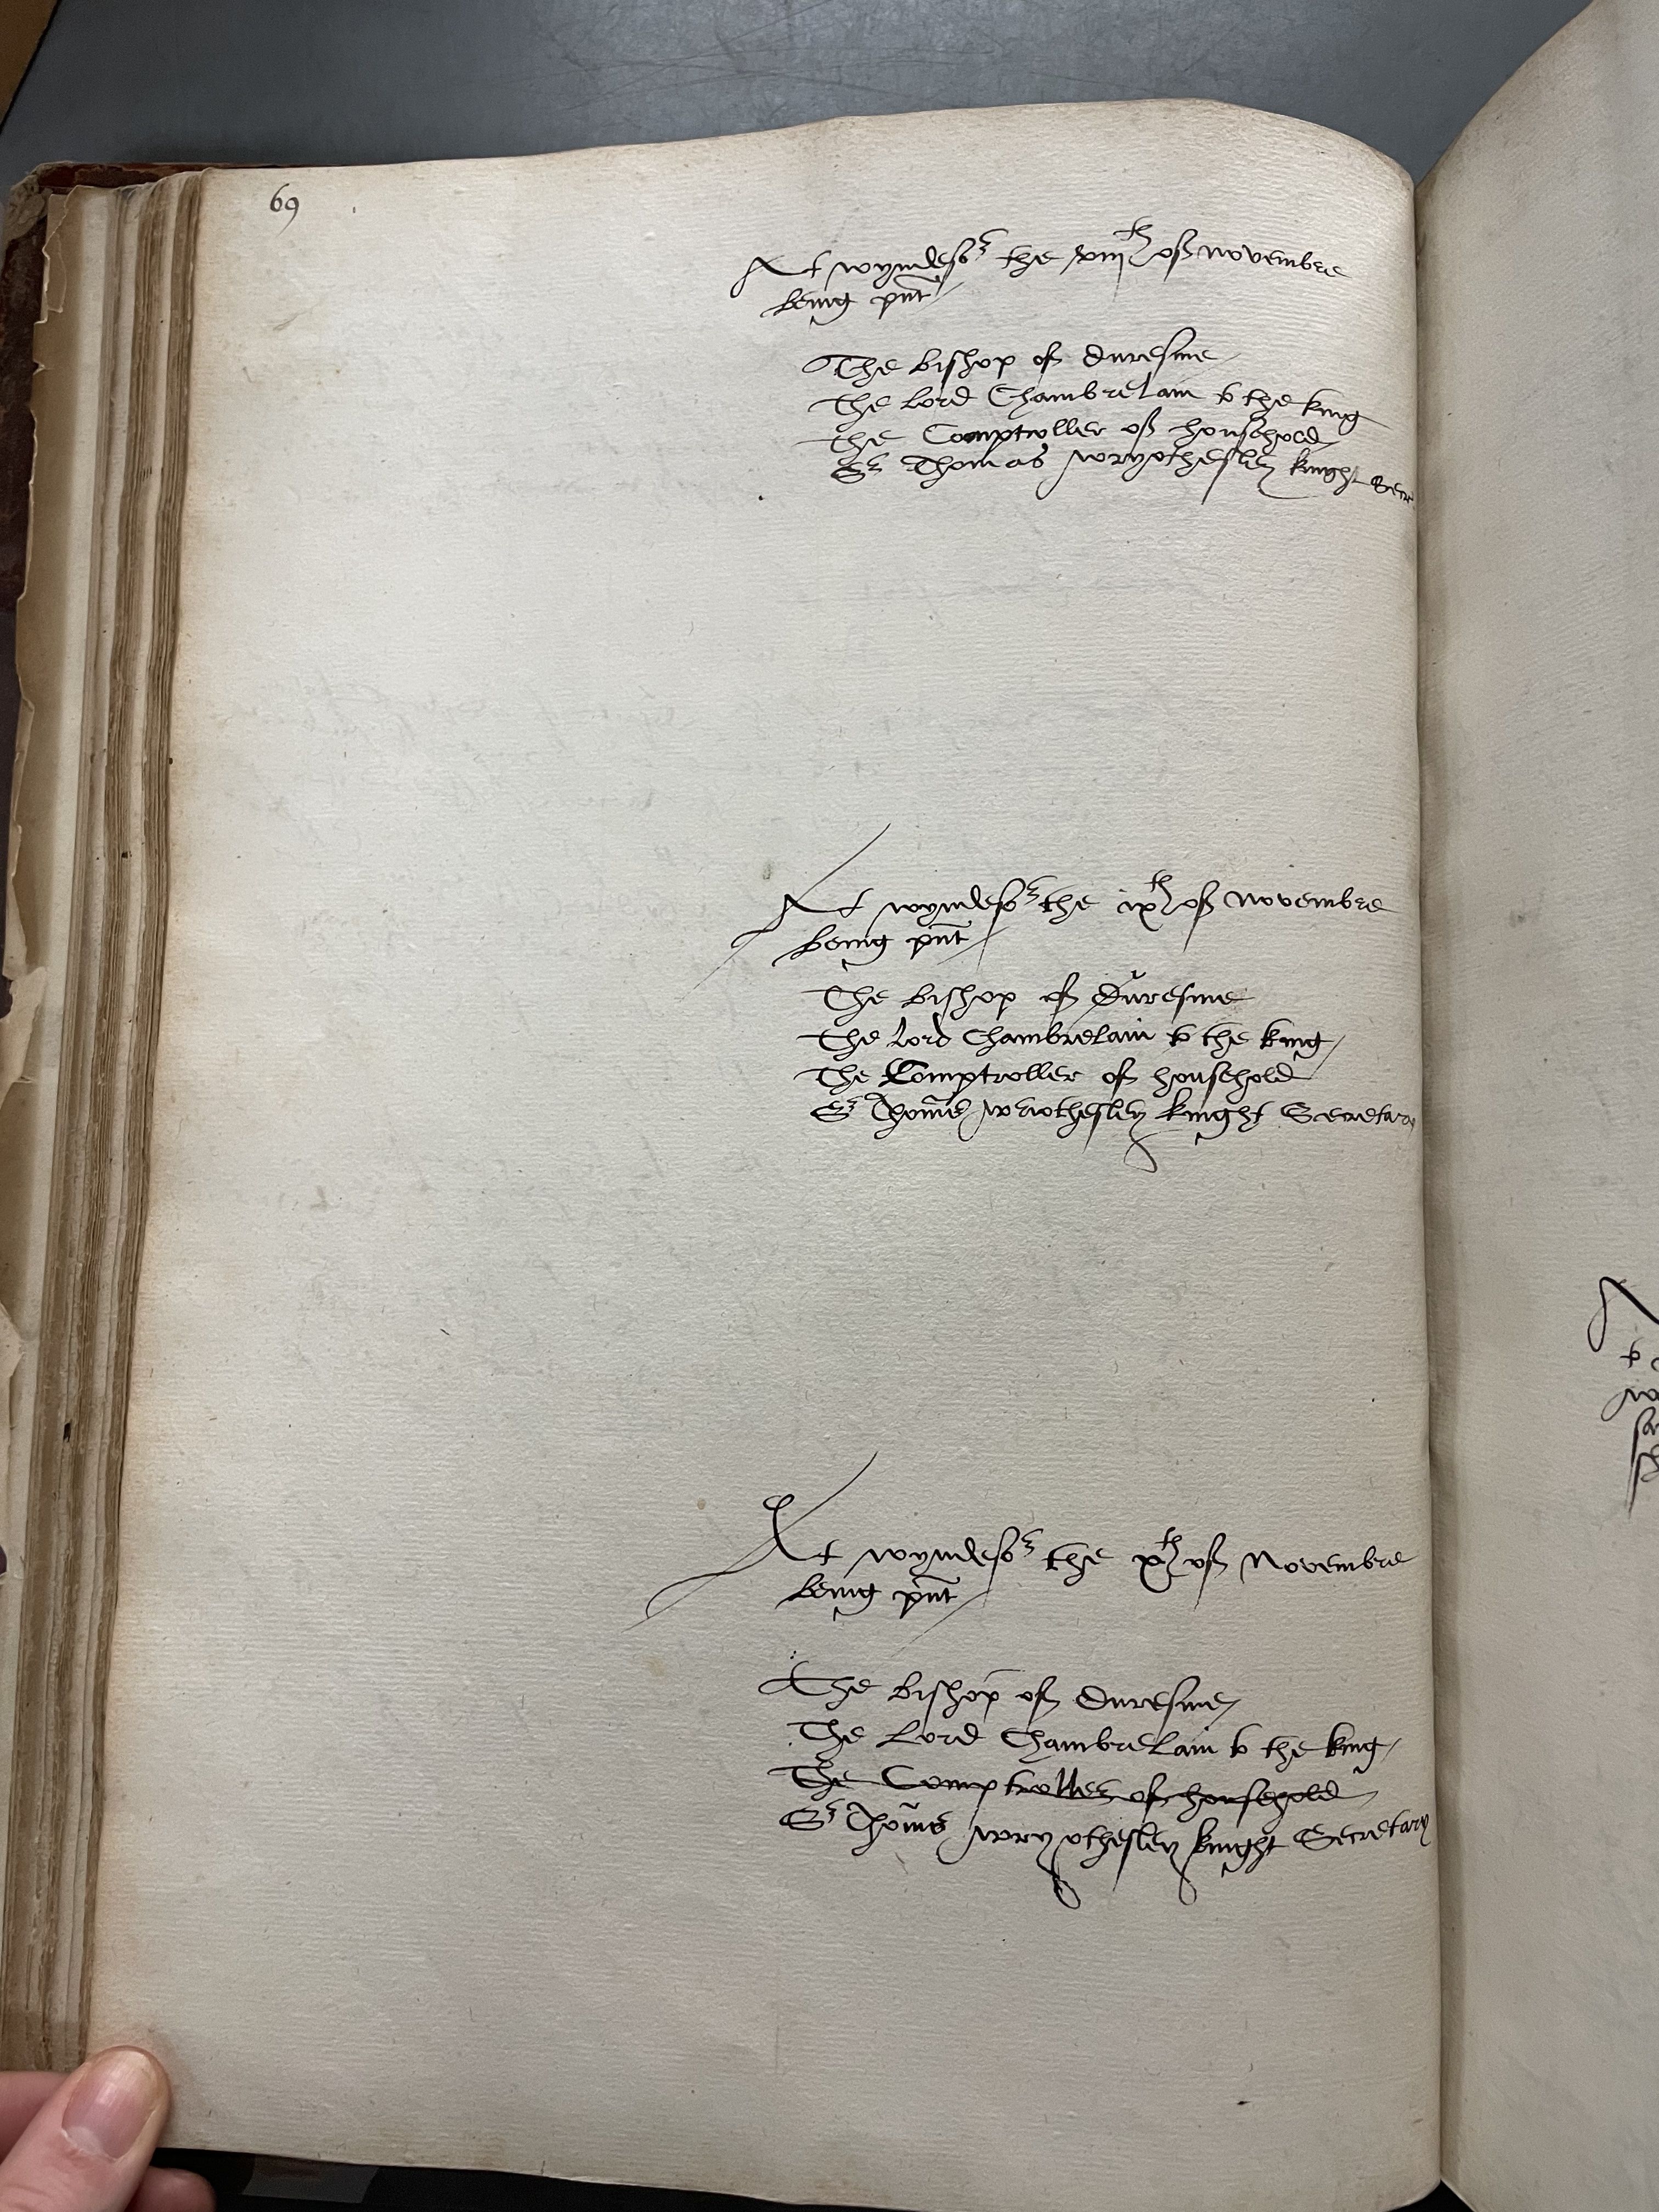 69
At wyndesor the viijth of Novembre
being pnt
The bishop of Duresme
The lord Chambrelain to the king
The Comptroller of houshold
Sr Thomas wryothesley knight Secr
At wyndesor the ixth of Novembre
being pnt
The bishop of Duresme
The lord Chambrelain to the king
The Comptroller of houshold
Sr Thoms wriothesley knight Secretary
At wyndesor the xth of Novembre
being pnt
The bishop of Duresme
The Lord Chambrelain to the king
The Comptroller of houshold
Sr Thoms wryothesley knight Secretary